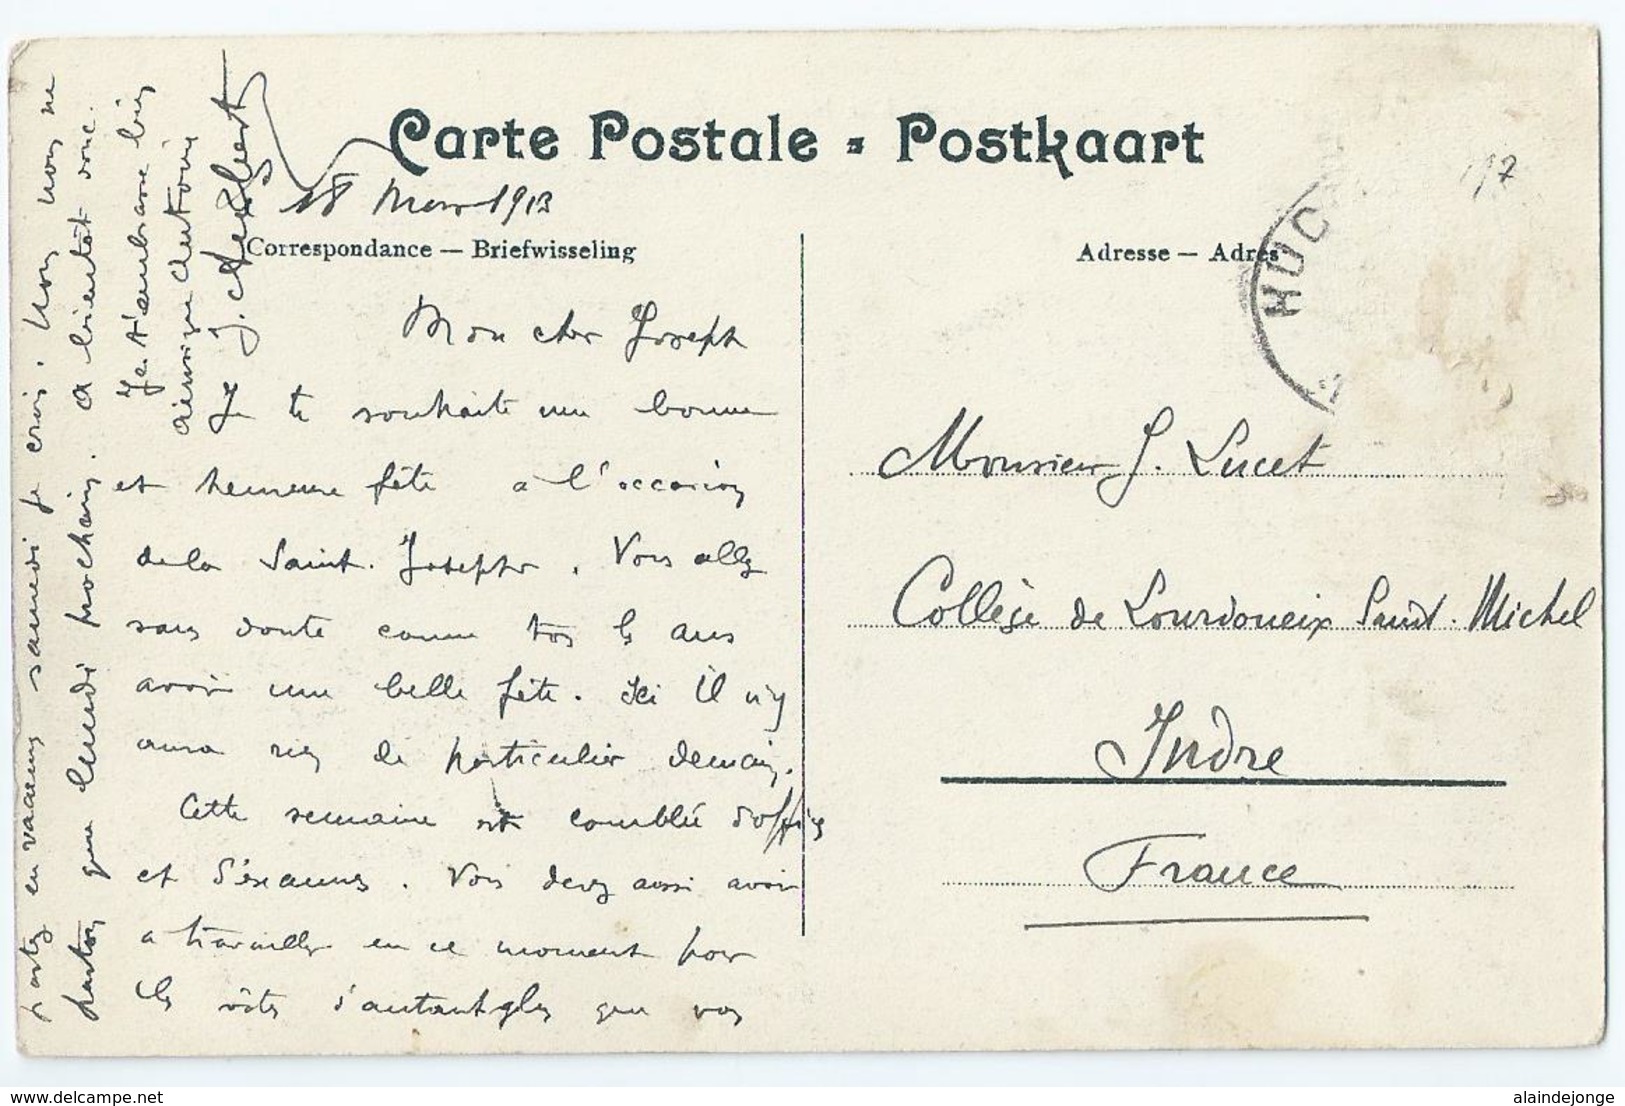 Carte Postale - Postkaart
18 Mars 1913
Correspondance — Briefwisseling
Adresse — Adres
HUC
Mon cher Joseph
Je te souhaite une bonne
et heureuse fête a l'occasion
de la Saint. Joseph. Vous allez
sans doute comme tous les ans
avoir une belle fête. Ici il n'y
aura rien de particulier demain.
Cette semaine est comblée d'offices
et d'examens. Vous devez aussi avoir
a travailler en ce moment pour
les d'autant plus que vous
partez en vacances samedi je crois. Nous nous ne
partons que lundi prochain. A bientôt donc.
Je t'embrasse bien
ainsi que
J.
Monsieur J. Lucet
Collège de Lourdoueix Saint. Michel
Indre
France
www.delcampe.net
alaindejonge